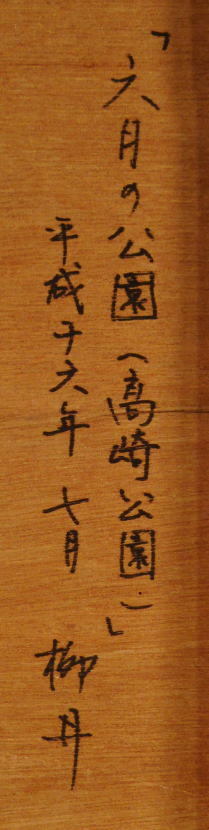 「六月の公園(高崎公園)」
平成十六年 七月 柳丹